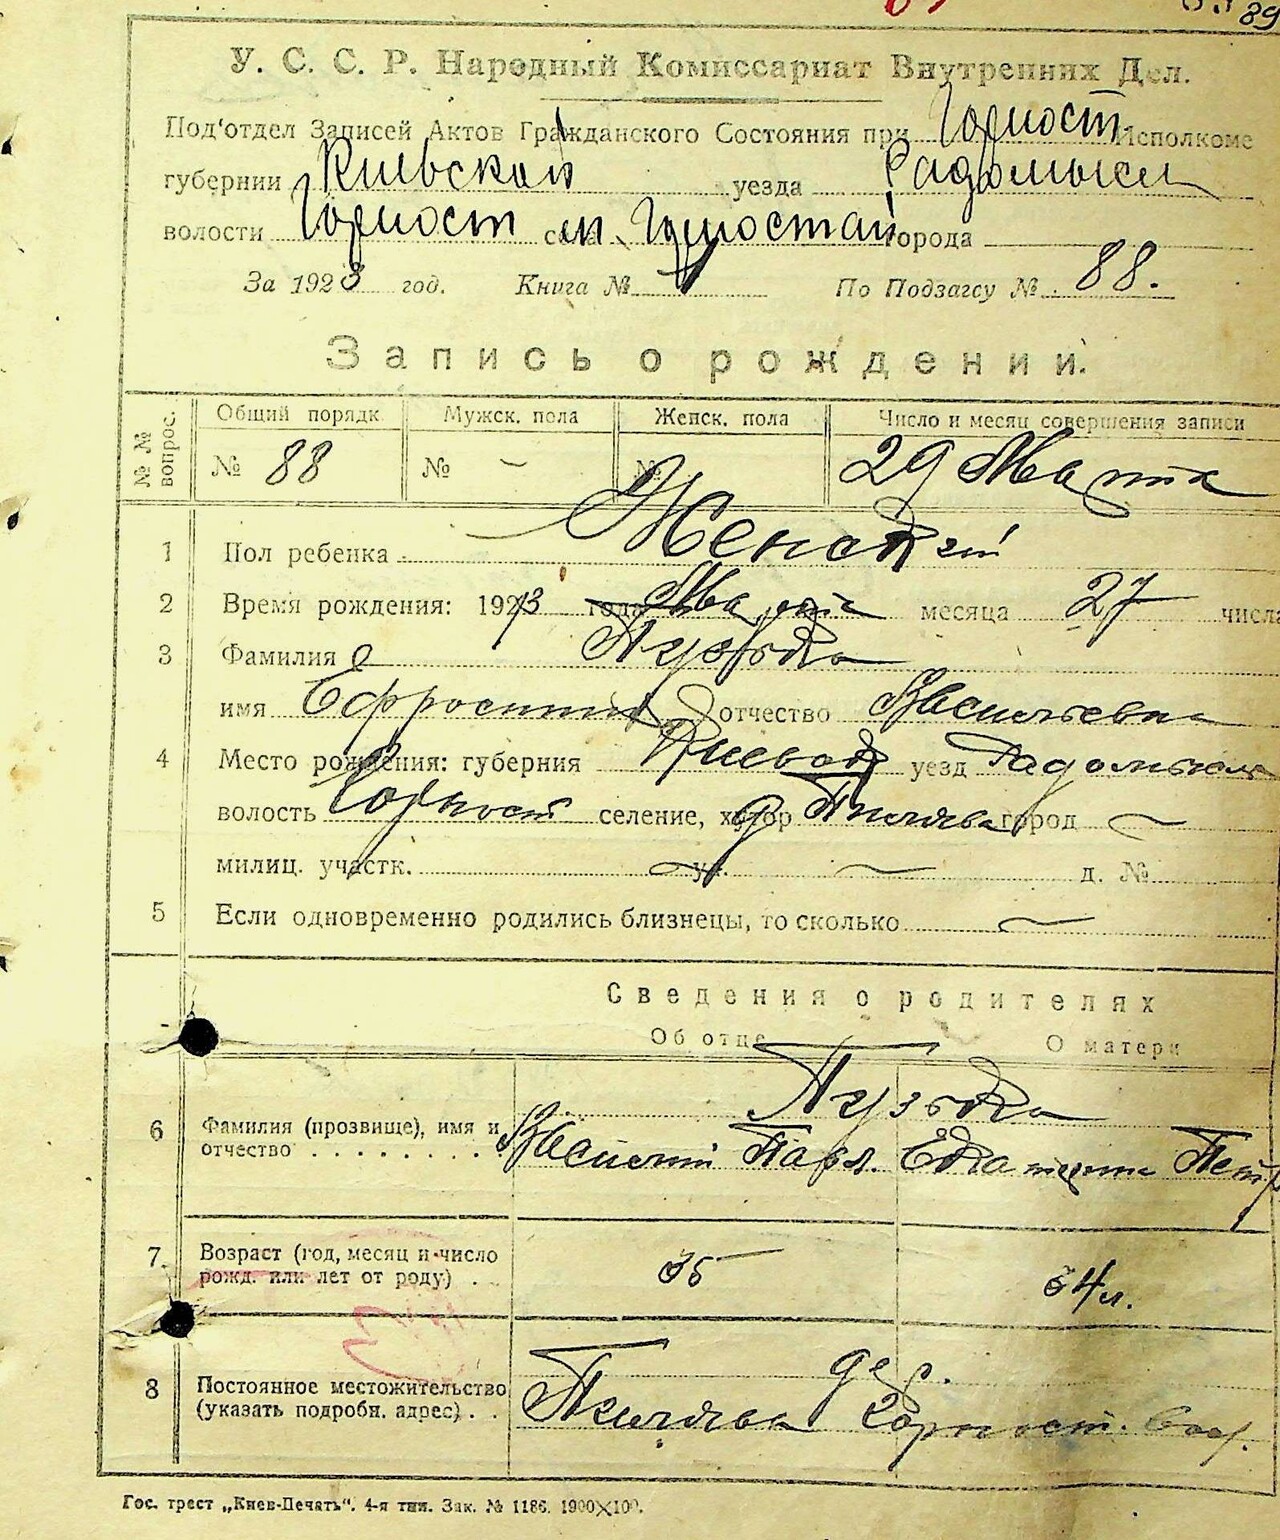 89
У. С. С. Р. Народный Комиссариат Внутренних Дел.
Под'отдел Записей Актов Гражданского Состояния при Горност. Исполкоме
губернии Киевской уезда Радомысл
волости Горност села м. Горностай города
За 1923 год. Книга № По Подзагсу № 88.
Запись о рождении.
№ № вопрос. Общий порядк. Мужск. пола Женск. пола Число и месяц совершения записи
№ 88 № – № 29 Марта
1 Пол ребенка Женский
2 Время рождения: 1923 года Марта месяца 27 числа
3 Фамилия Пузырка
имя Ефросиния отчество Васильевна
4 Место рождения: губерния Киевск уезд Радомысл
волость Горност селение, хутор город –
милиц. участк. – ул. – д. №
5 Если одновременно родились близнецы, то сколько –
Сведения о родителях
Об отце О матери
6 Фамилия (прозвище), имя и отчество
Василий Павл. Екатерина Петр
7. Возраст (год, месяц и число рожд. или лет от роду) 35 34 л.
8 Постоянное местожительство (указать подробн. адрес)
дер.
Горност. вол.
Гос. трест „Киев-Печать“. 4-я тип. Зак. № 1186. 1900×100.